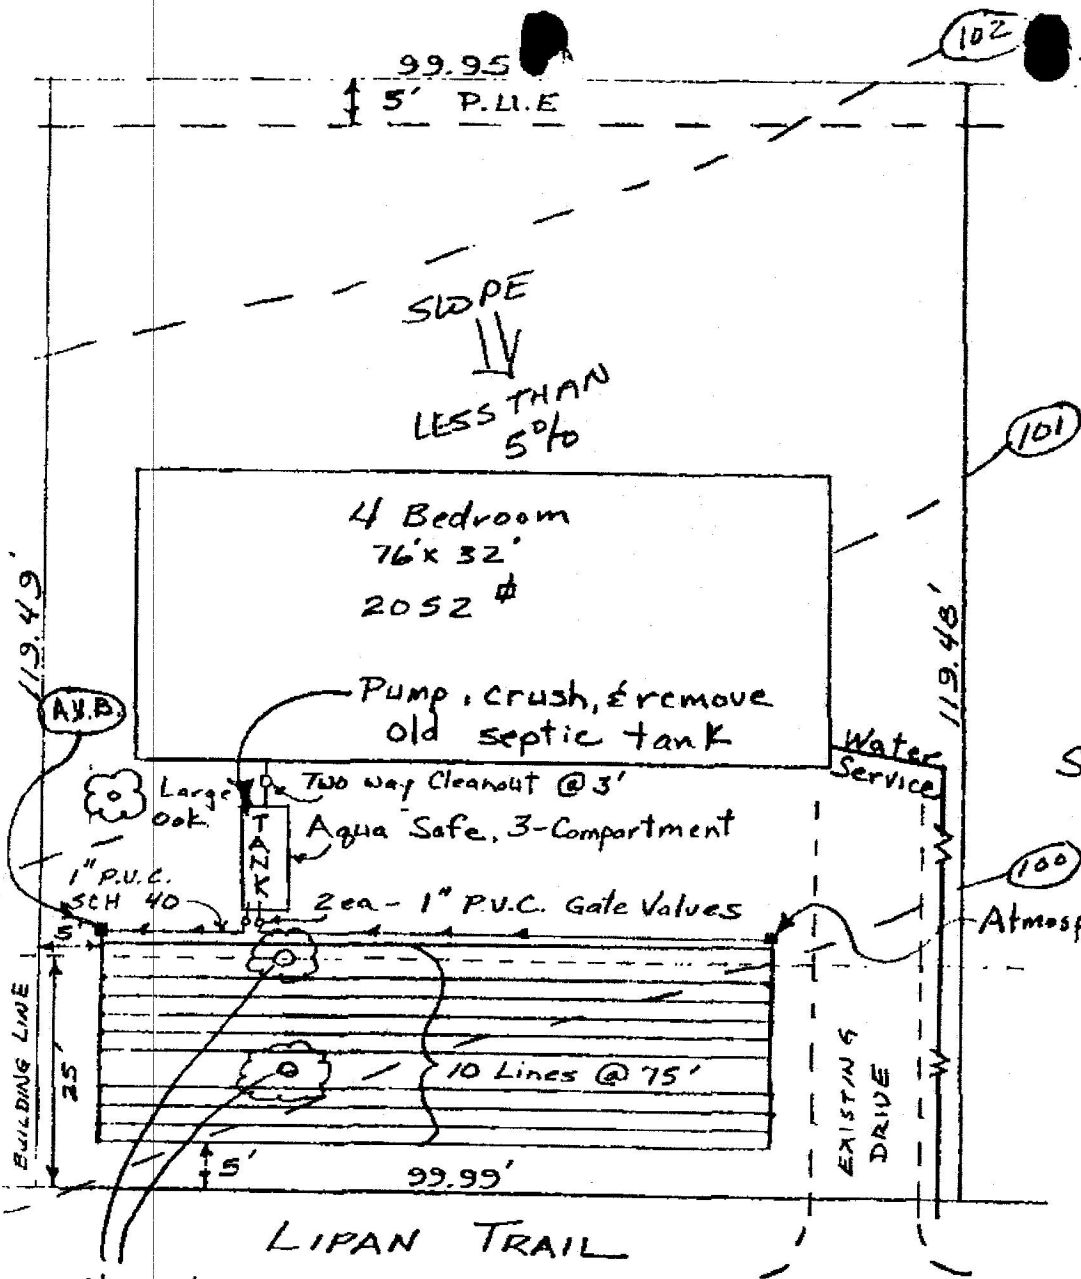 102
99.95
5' P.U.E
SLOPE
LESS THAN
5%
101
4 Bedroom
76' x 32'
2052
119.49'
119.48'
A.V.B.
Pump, crush, & remove
old septic tank
Water
Service
S
Large
Oak
Two way Cleanout @ 3'
TANK
Aqua Safe, 3-Compartment
100
1" P.V.C.
SCH 40
2 ea - 1" P.V.C. Gate Valves
Atmosp
5'
BUILDING LINE
25'
10 Lines @ 75'
EXISTING
DRIVE
5'
99.99'
LIPAN TRAIL